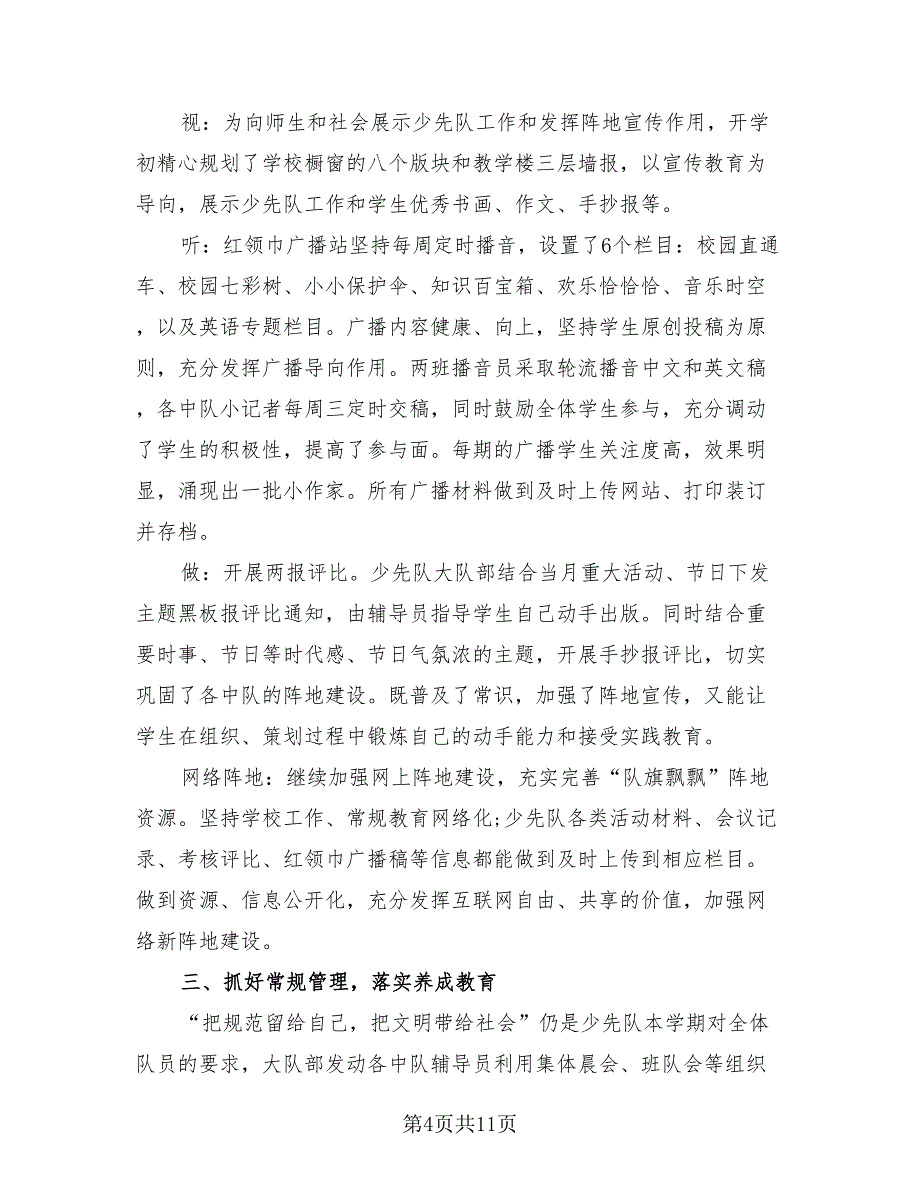 视：为向师生和社会展示少先队工作和发挥阵地宣传作用，开学
初精心规划了学校橱窗的八个版块和教学楼三层墙报，以宣传教育为
导向，展示少先队工作和学生优秀书画、作文、手抄报等。
听：红领巾广播站坚持每周定时播音，设置了6个栏目：校园直通
车、校园七彩树、小小保护伞、知识百宝箱、欢乐恰恰恰、音乐时空
，以及英语专题栏目。广播内容健康、向上，坚持学生原创投稿为原
则，充分发挥广播导向作用。两班播音员采取轮流播音中文和英文稿
，各中队小记者每周三定时交稿，同时鼓励全体学生参与，充分调动
了学生的积极性，提高了参与面。每期的广播学生关注度高，效果明
显，涌现出一批小作家。所有广播材料做到及时上传网站、打印装订
并存档。
做：开展两报评比。少先队大队部结合当月重大活动、节日下发
主题黑板报评比通知，由辅导员指导学生自己动手出版。同时结合重
要时事、节日等时代感、节日气氛浓的主题，开展手抄报评比，切实
巩固了各中队的阵地建设。既普及了常识，加强了阵地宣传，又能让
学生在组织、策划过程中锻炼自己的动手能力和接受实践教育。
网络阵地：继续加强网上阵地建设，充实完善“队旗飘飘”阵地
资源。坚持学校工作、常规教育网络化;少先队各类活动材料、会议记
录、考核评比、红领巾广播稿等信息都能做到及时上传到相应栏目。
做到资源、信息公开化，充分发挥互联网自由、共享的价值，加强网
络新阵地建设。
三、抓好常规管理，落实养成教育
“把规范留给自己，把文明带给社会”仍是少先队本学期对全体
队员的要求，大队部发动各中队辅导员利用集体晨会、班队会等组织
第4页共11页